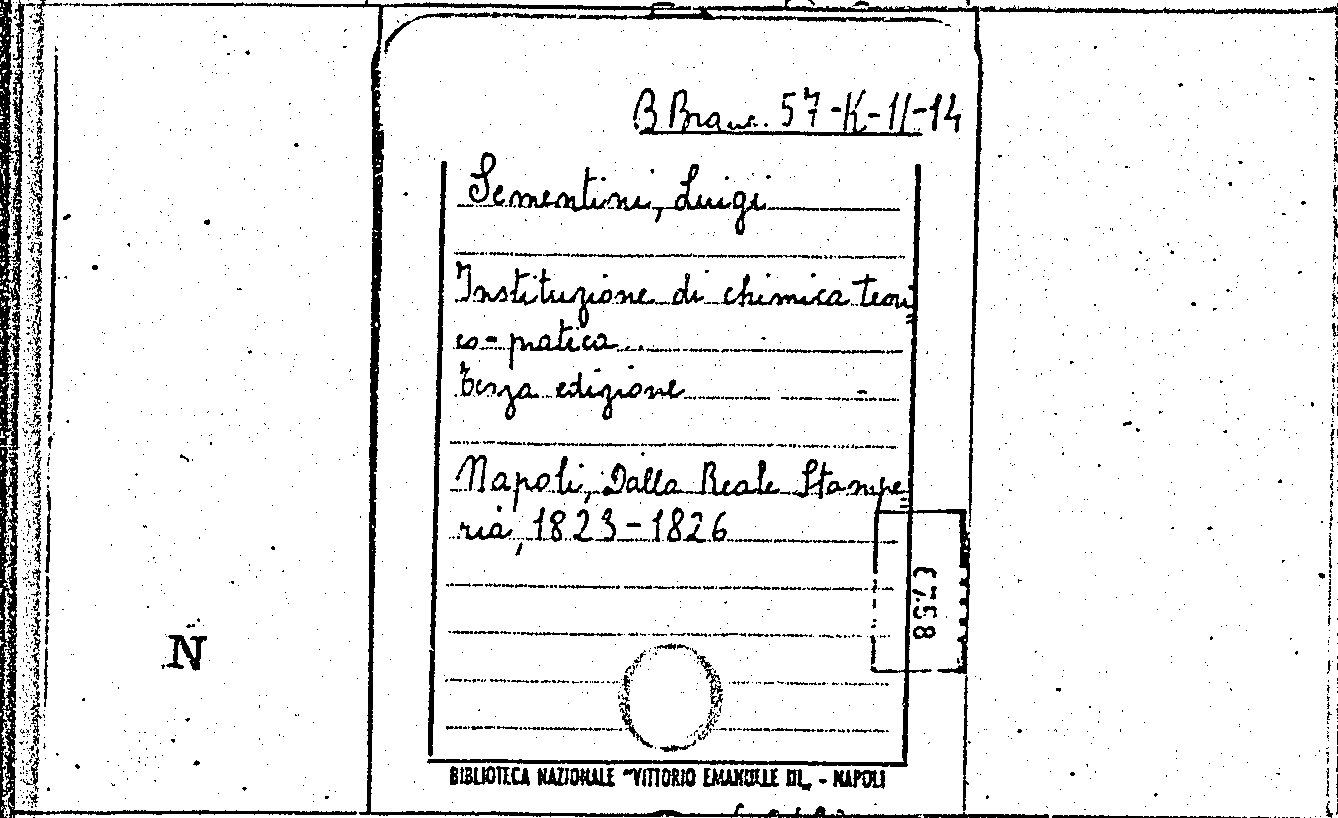 B Branc. 57-K-11-14
Sementini, Luigi
Instituzione di chimica teori
co-pratica
Terza edizione
Napoli, Dalla Reale Stampe
ria, 1823-1826
N
BIBLIOTECA NAZIONALE "VITTORIO EMANUELE III„ - NAPOLI